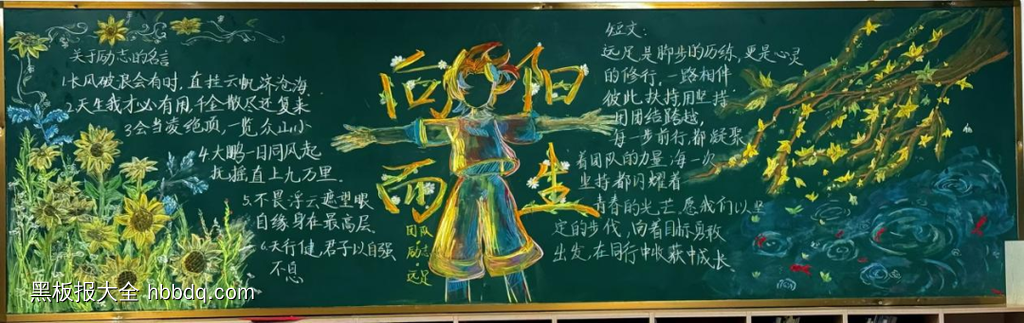 关于励志的名言
1.长风破浪会有时,直挂云帆济沧海
2.天生我才必有用千金散尽还复来
3.会当凌绝顶,一览众山小
4.大鹏一日同风起
扶摇直上九万里.
5.不畏浮云遮望眼
自缘身在最高层
6.天行健,君子以自强
不息
向阳
而生
团队
励志
远足
短文:
远足是脚步的历练,更是心灵
的修行,一路相伴
彼此扶持用坚持
团团结跨越,
每一步前行,都凝聚
着团队的力量,每一次
坚持都闪耀着
青春的光芒.愿我们以
的步伐,向着目标勇敢
出发,在同行中收获中成长
黑板报大全 hbbdq.com